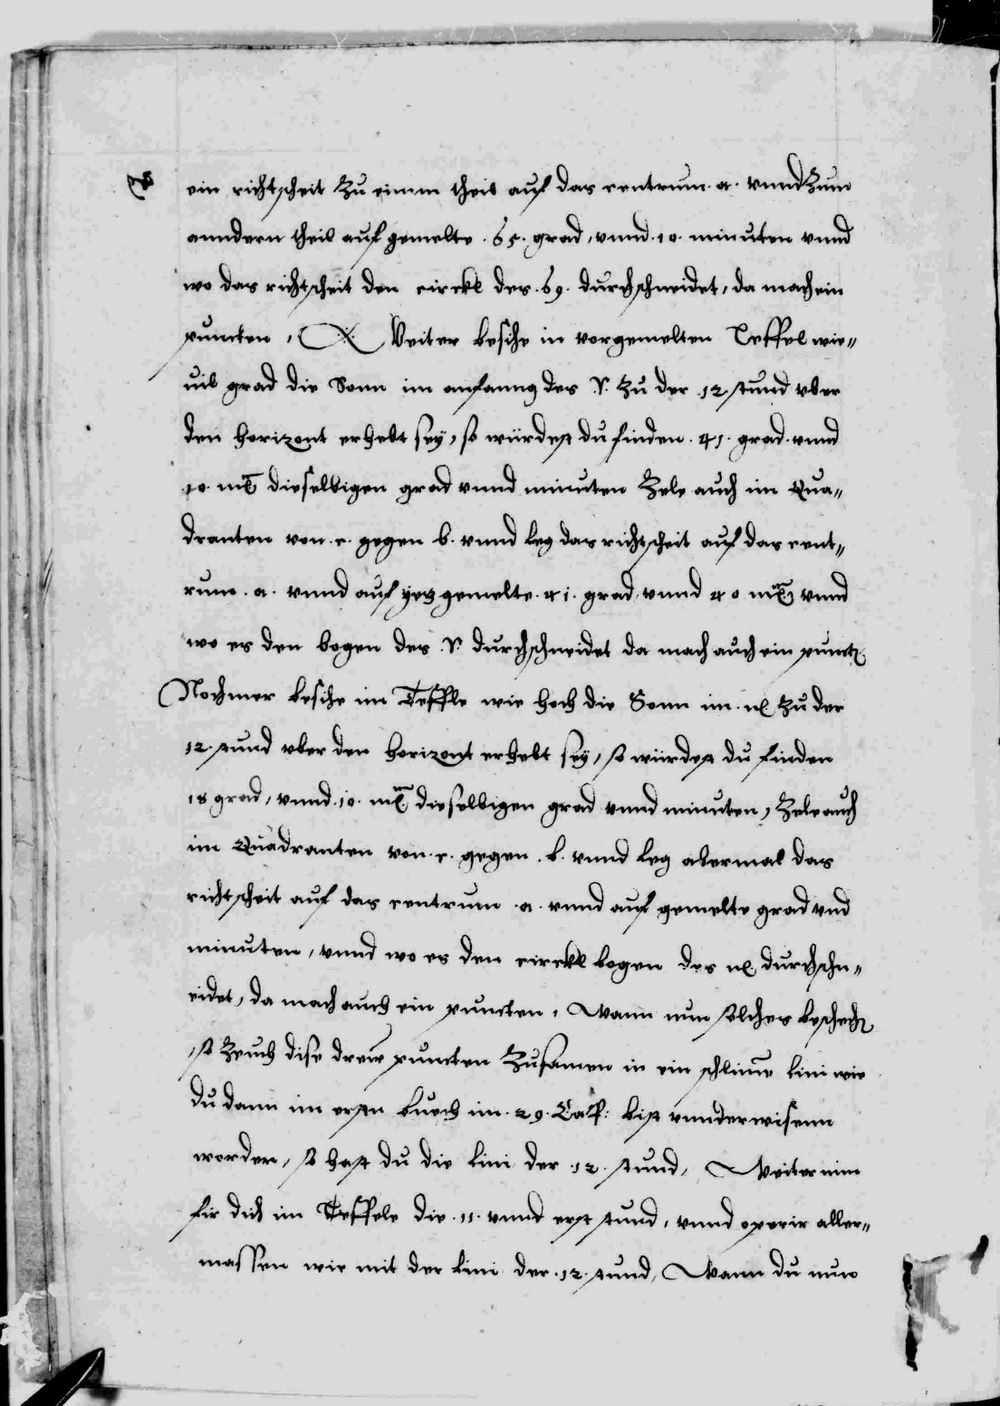 ein richtscheit zu einem theil auf das centrum .a. vnnd zum
anndern theil auf gemelte .65. grad, vnnd .10. minuten vnnd
wo das richtscheit den circkl des .69. durchschneidet, da mach ein
puncten, Weiter besihe in vorgemelten Teffel wie„
uil grad die Sonn im anfanng des ♈. zu der .12 stund vber
den horizont erhebt seÿ, so würdest du finden .41. grad vnnd
.10. mi dieselbigen grad vnnd minuten zele auch im Qua„
dranten von .c. gegen b. vnnd leg das richtscheit auf das cent„
rum .a. vnnd auf yetz gemelte .41. grad vnnd 40 mi vnnd
wo es den bogen des .♈. durchschneidet da mach auch ein punct
Nochmer besihe im Teffle wie hoch die Sonn im zu der
12. stund vber den horizont erhebt seÿ, so würdest du finden
18 grad, vnnd .10. mi dieselbigen grad vnnd minuten, zele auch
im Quadranten von .c. gegen .b. vnnd leg abermal das
richtscheit auf das centrum .a. vnnd auf gemelte grad vnd
minuten, vnnd wo es den circkl bogen des durchschn„
eidet, da mach auch ein puncten, Wann nun solches beschech
, so zeuch dise dreiw puncten zusamen in ein schlime lini wie
du dann im ersten buech im .29. Cap: bist vnnderwisenn
worden, so hast du die lini der .12. stund, Weiter nim
fir dich im Teffele die .11. vnnd erst stund, vnnd operir aller„
massen wie mit der lini der .12. stund, Wann du nun